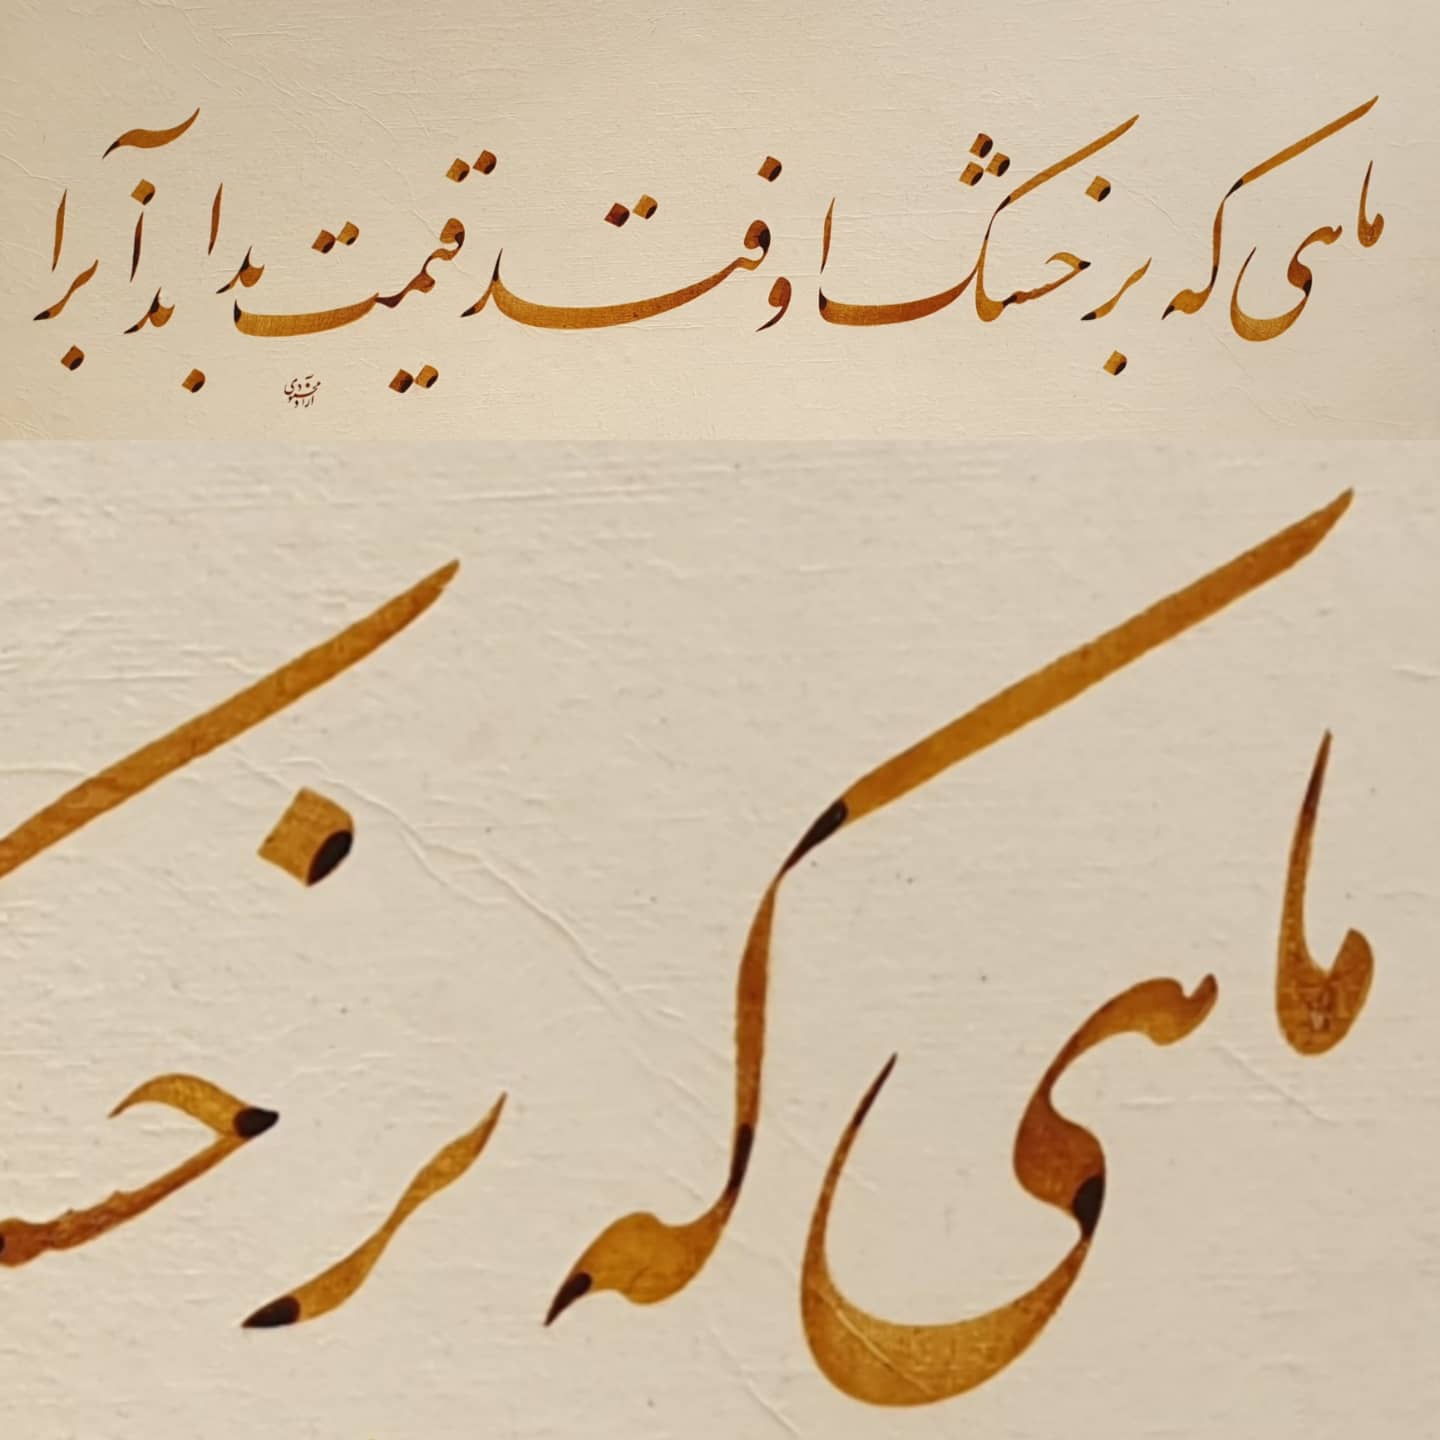 ماهی که بر خشک اوفتد قیمت بداند آب را
آزاد محمودی
ماهی که بر